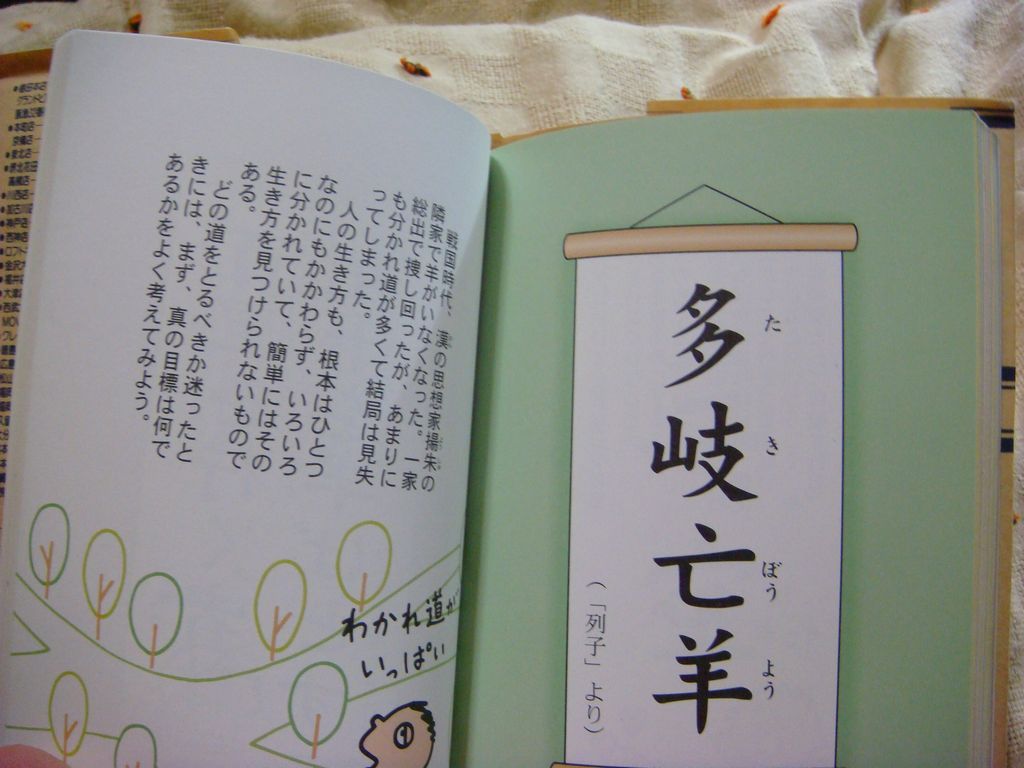 多岐亡羊
た き ぼう よう
(「列子」より)
戦国時代、漢の思想家揚朱の
隣家で羊がいなくなった。一家
総出で捜し回ったが、あまりに
も分かれ道が多くて結局は見失
ってしまった。
人の生き方も、根本はひとつ
なのにもかかわらず、いろいろ
に分かれていて、簡単にはその
生き方を見つけられないもので
ある。
どの道をとるべきか迷ったと
きには、まず、真の目標は何で
あるかをよく考えてみよう。
わかれ道が
いっぱい